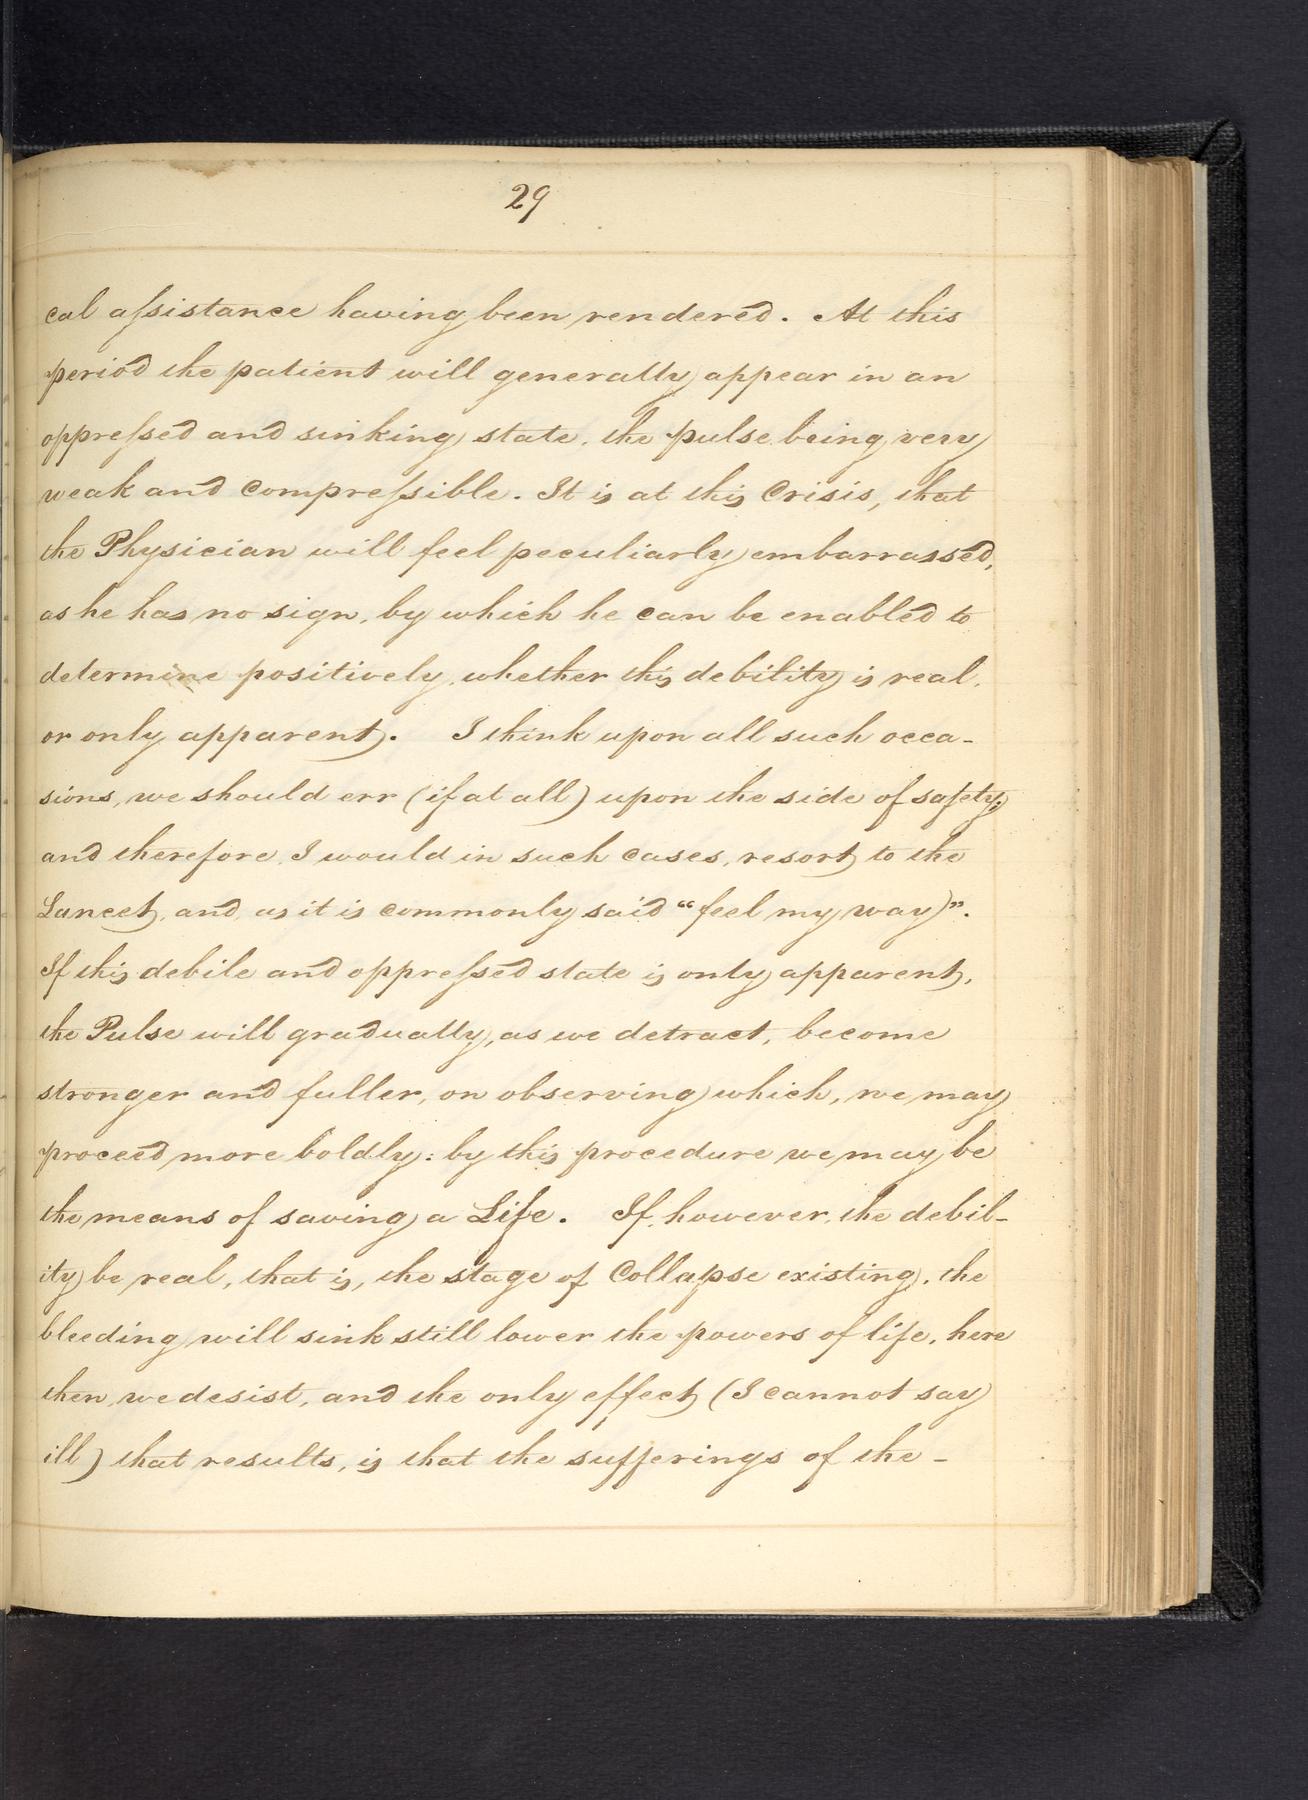 29
cal aſsistance having been rendered. At this
period the patient will generally appear in an
oppreſsed and sinking state, the pulse being very
weak and compreſsible. It is at this Crisis, that
the Physician will feel peculiarly embarrassed,
as he has no sign, by which he can be enabled to
determine positively, whether this debility is real,
or only apparent. I think upon all such occa-
sions, we should err (if at all) upon the side of safety;
and therefore, I would in such cases, resort to the
Lancet, and, as it is commonly said "feel my way".
If this debile and oppreſsed state is only apparent,
the Pulse will gradually, as we detract, become
stronger and fuller, on observing which, we may
proceed more boldly: by this procedure we may be
the means of saving a Life. If, however, the debil-
ity be real, that is, the stage of Collapse existing, the
bleeding will sink still lower the powers of life, here
then, we desist, and the only effect (I cannot say
ill) that results, is that the sufferings of the -